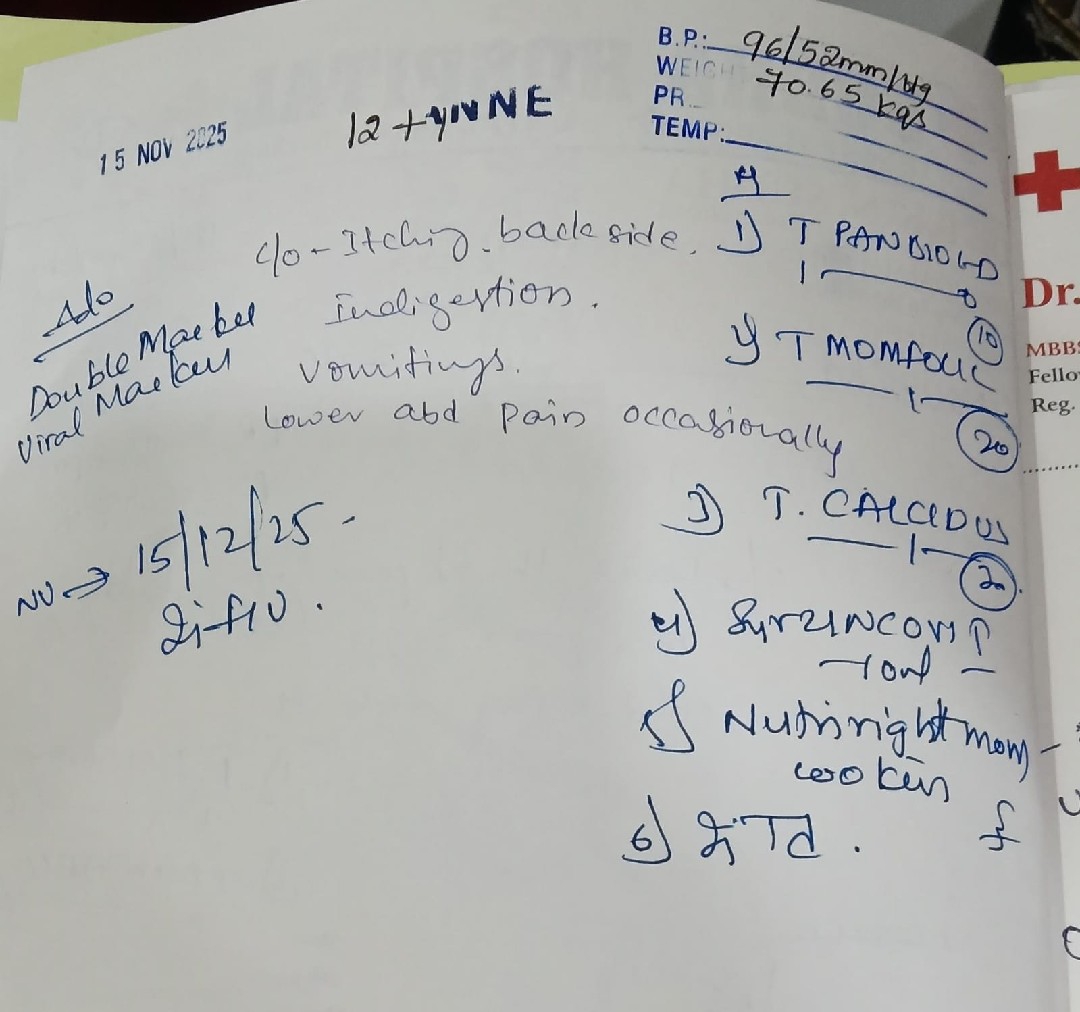 B.P.: 96/52mm/Hg
WEIGH 70.65 kgs
PR
TEMP:
15 NOV 2025
12 +
c/o - Itching. back side,
Indigestion.
vomitings.
Lower abd pain occasionally
Ado
Double Marker
Viral Markers
NV → 15/12/25 -
1) T PAN
10
T MOMFOLIC
20
3) T. CALCIDUS
4)
5) Nutriright mom -
cookies
6)
Dr.
MBBS
Fello
Reg.